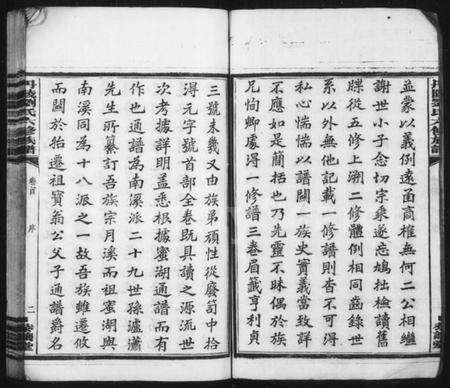 並蒙以義例遠函商榷無何二公相繼
謝世小子愈切宗乘遂忘鳩拙檢讀舊
牒從五修上溯二修體例相同蓋錄世
系以外無他記載一修譜則杳不可得
私心惴惴以譜關一族史實義當致詳
不應如是簡括也乃先靈不昧偶於族
兄恂卿處得一修譜三卷眉籤亨利貞
三號未幾又由族弟頑性從廢笥中拾
得元字號首部全卷既具讀之源流世
次考據詳明蓋悉根據蜜湖通譜而有
作也通譜為南溪派二十九世孫瀘瀟
先生所纂訂吾族宗月溪而祖蜜湖與
南溪同為十八派之一故吾族雖遷攸
而關於始遷祖寶翁公父子通譜爵名
卷首
序
二